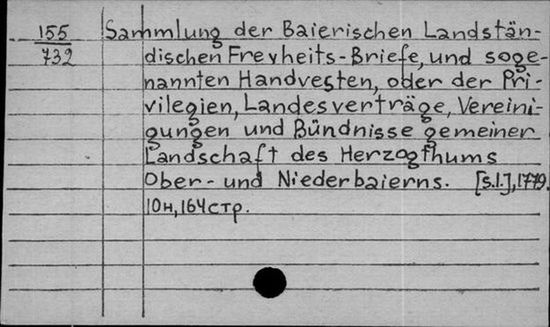 155 Sammlung der Baierischen Landstän-
732 dischen Freyheits-Briefe, und soge-
nannten Handvesten, oder der Pri-
vilegien, Landesverträge, Vereini-
gungen und Bündnisse gemeiner
Landschaft des Herzogthums
Ober- und Niederbaierns. [S.l.], 1779.
10н, 164 стр.